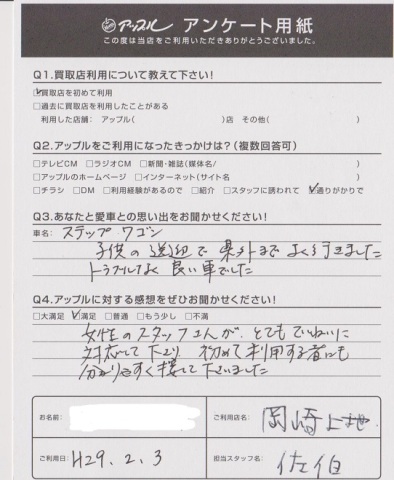 アップル アンケート用紙
この度は当店をご利用いただきありがとうございました。
Q1.買取店利用について教えて下さい!
☑買取店を初めて利用
□過去に買取店を利用したことがある
利用した店舗: アップル( )店 その他( )
Q2.アップルをご利用になったきっかけは?(複数回答可)
□テレビCM □ラジオCM □新聞・雑誌(媒体名/ )
□アップルのホームページ □インターネット(サイト名 )
□チラシ □DM □利用経験があるので □紹介 □スタッフに誘われて ☑通りがかりで
Q3.あなたと愛車との思い出をお聞かせください!
車名: ステップワゴン
子供の送迎で県外までよく行きました
トラブルなく良い車でした
Q4.アップルに対する感想をぜひお聞かせください!
□大満足 ☑満足 □普通 □もう少し □不満
女性のスタッフさんが、とてもていねいに
対応して下さり 初めて利用する者にも
分かりやすく接して下さいました
お名前:
ご利用店名: 岡崎上地
ご利用日: H29.2.3
担当スタッフ名: 佐伯